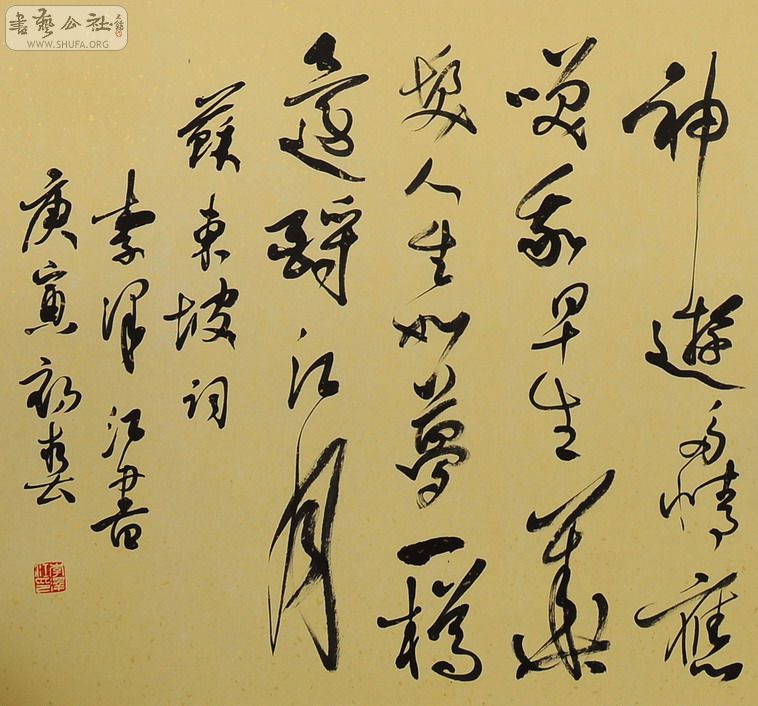 神遊多情應
笑我早生華
髮人生如夢一樽
還酹江月
蘇東坡詞
李澤江書
庚寅初春
李澤江印
書藝公社
WWW.SHUFA.ORG